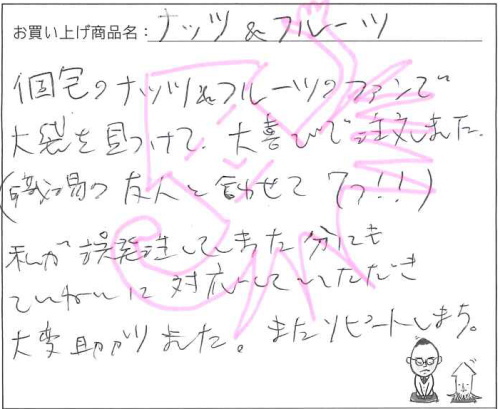 お買い上げ商品名：ナッツ&フルーツ
個宅のナッツ&フルーツのファンで
大袋を見つけて、大喜びで注文しました。
(職場の友人と合わせて7つ!!)
私が誤発注してしまった分にも
ていねいに対応していただき
大変助かりました。またリピートします。